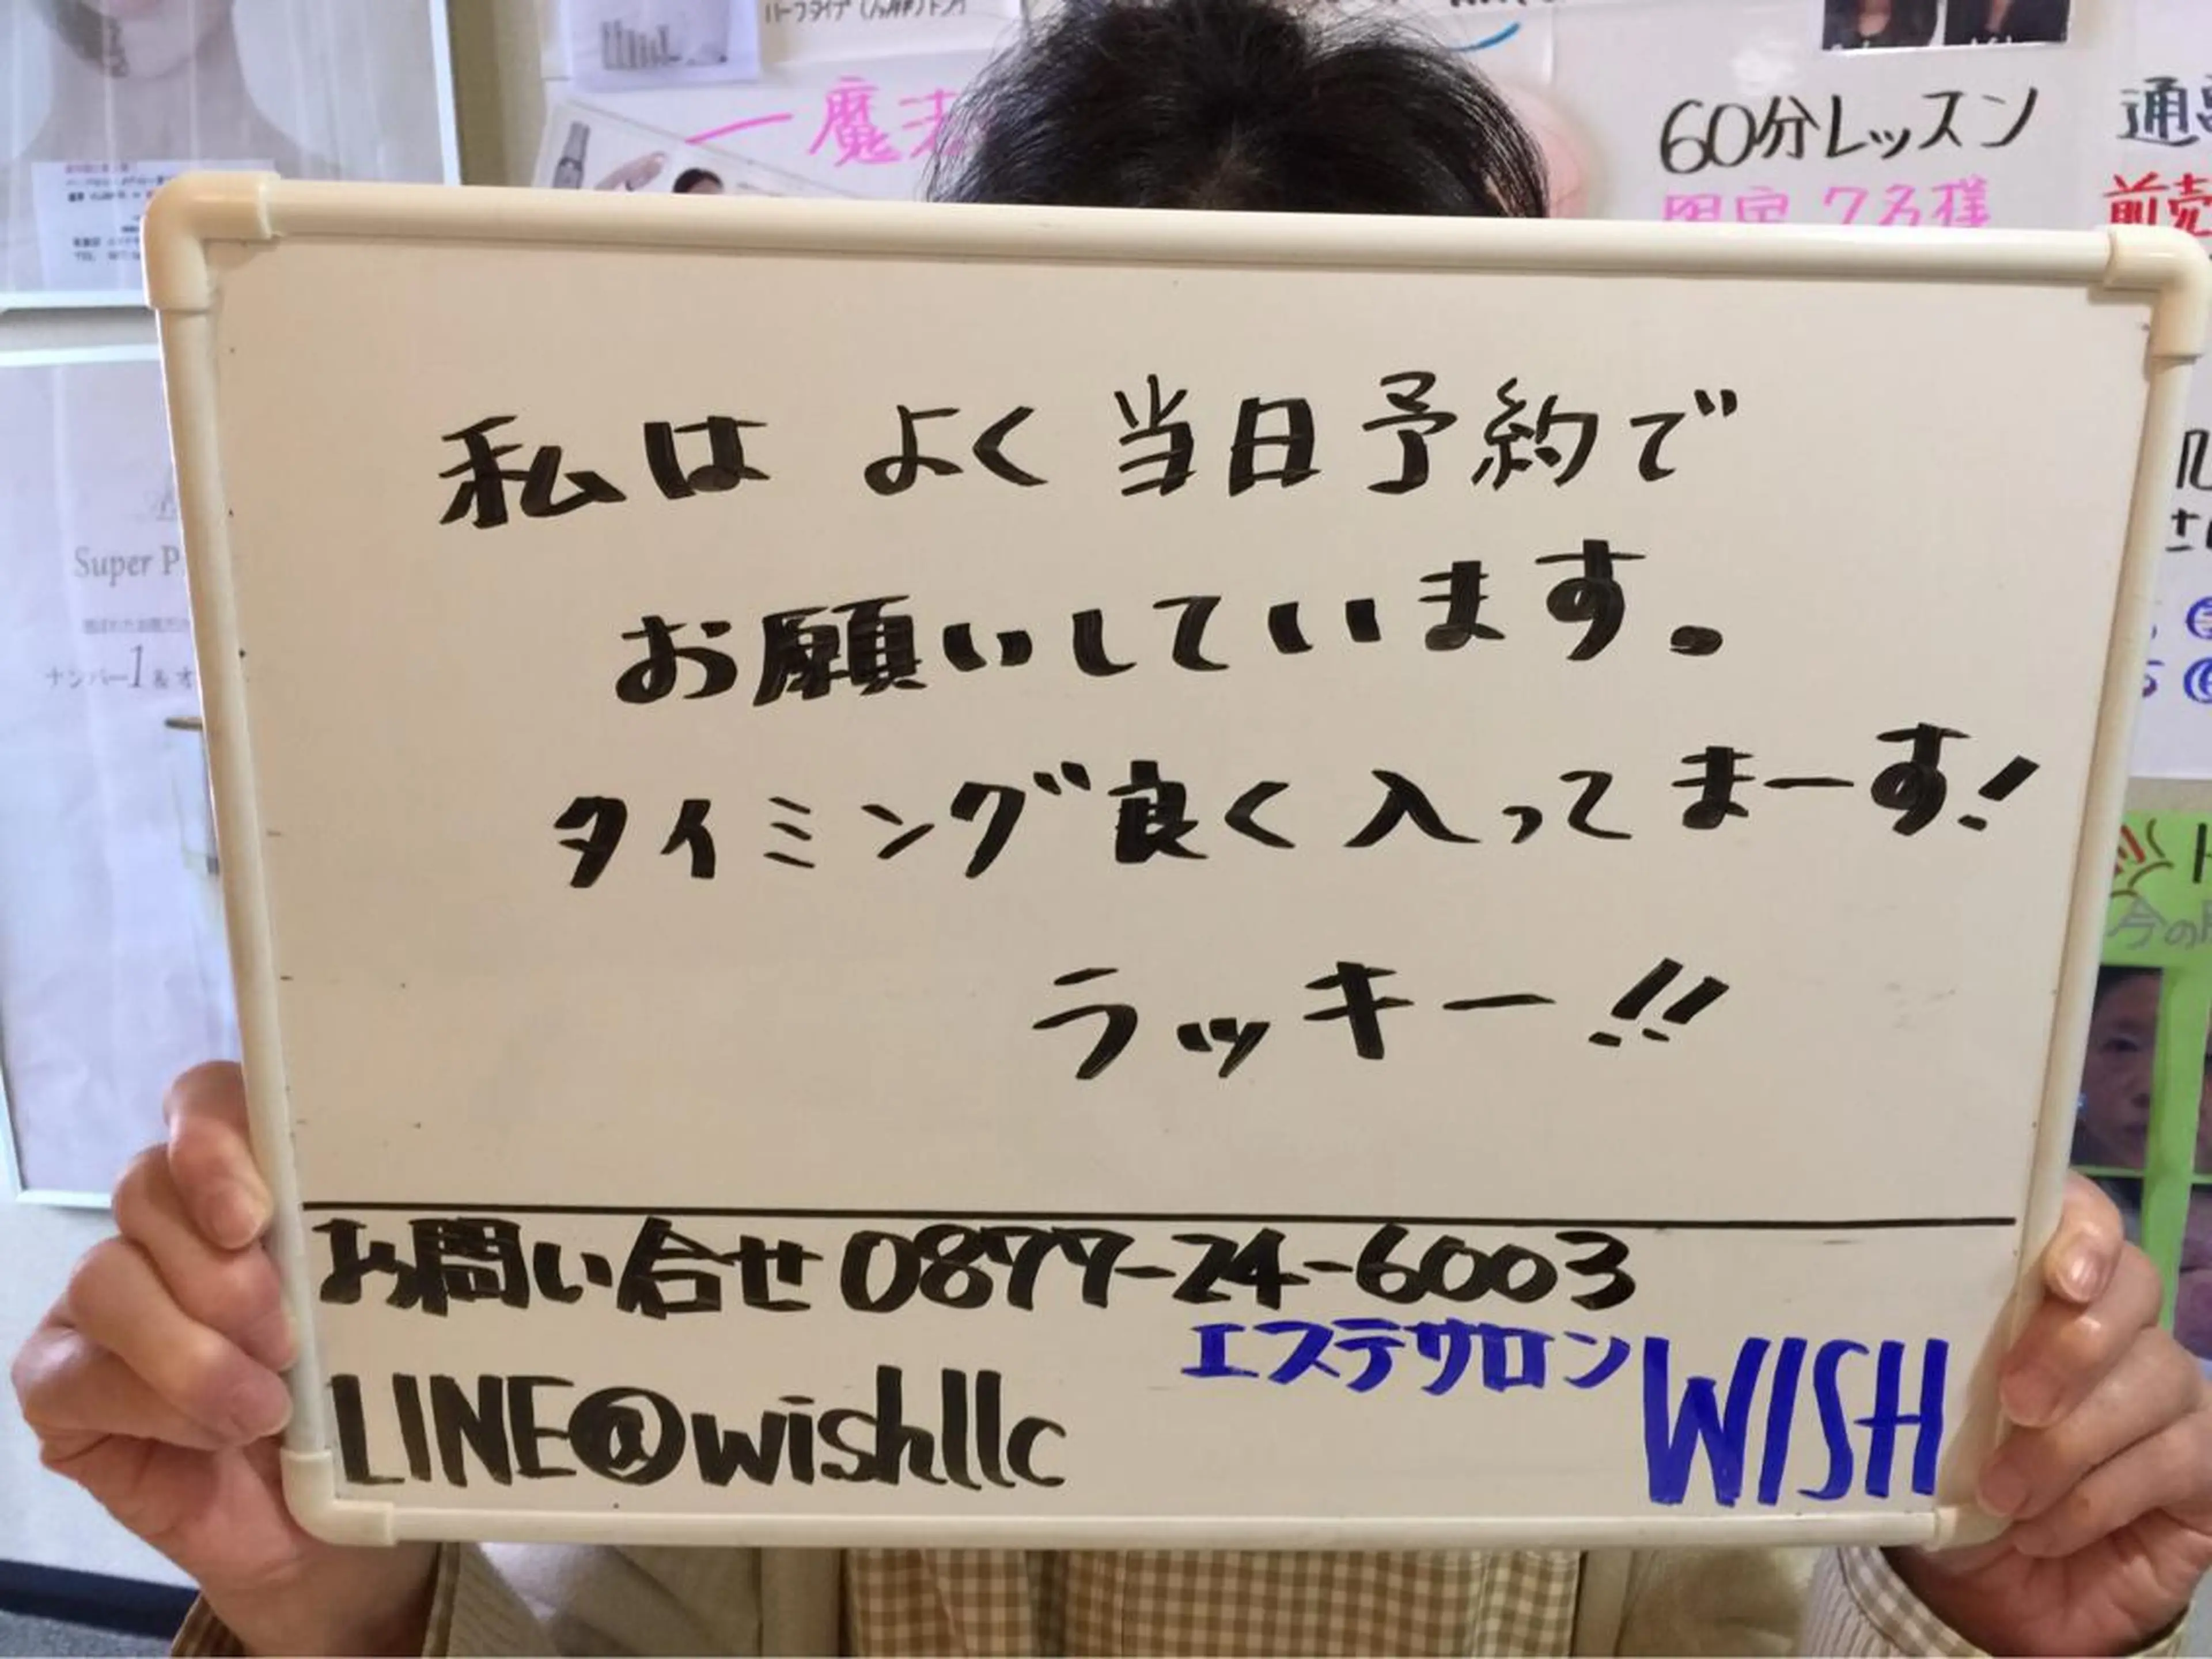 60分レッスン
限定 7名様
Super P
ナンバー1&オ
私は よく 当日予約で
お願いしています。
タイミング良く入ってまーす!
ラッキー!!
お問い合せ 0877-24-6003
エステサロン WISH
LINE@wishllc